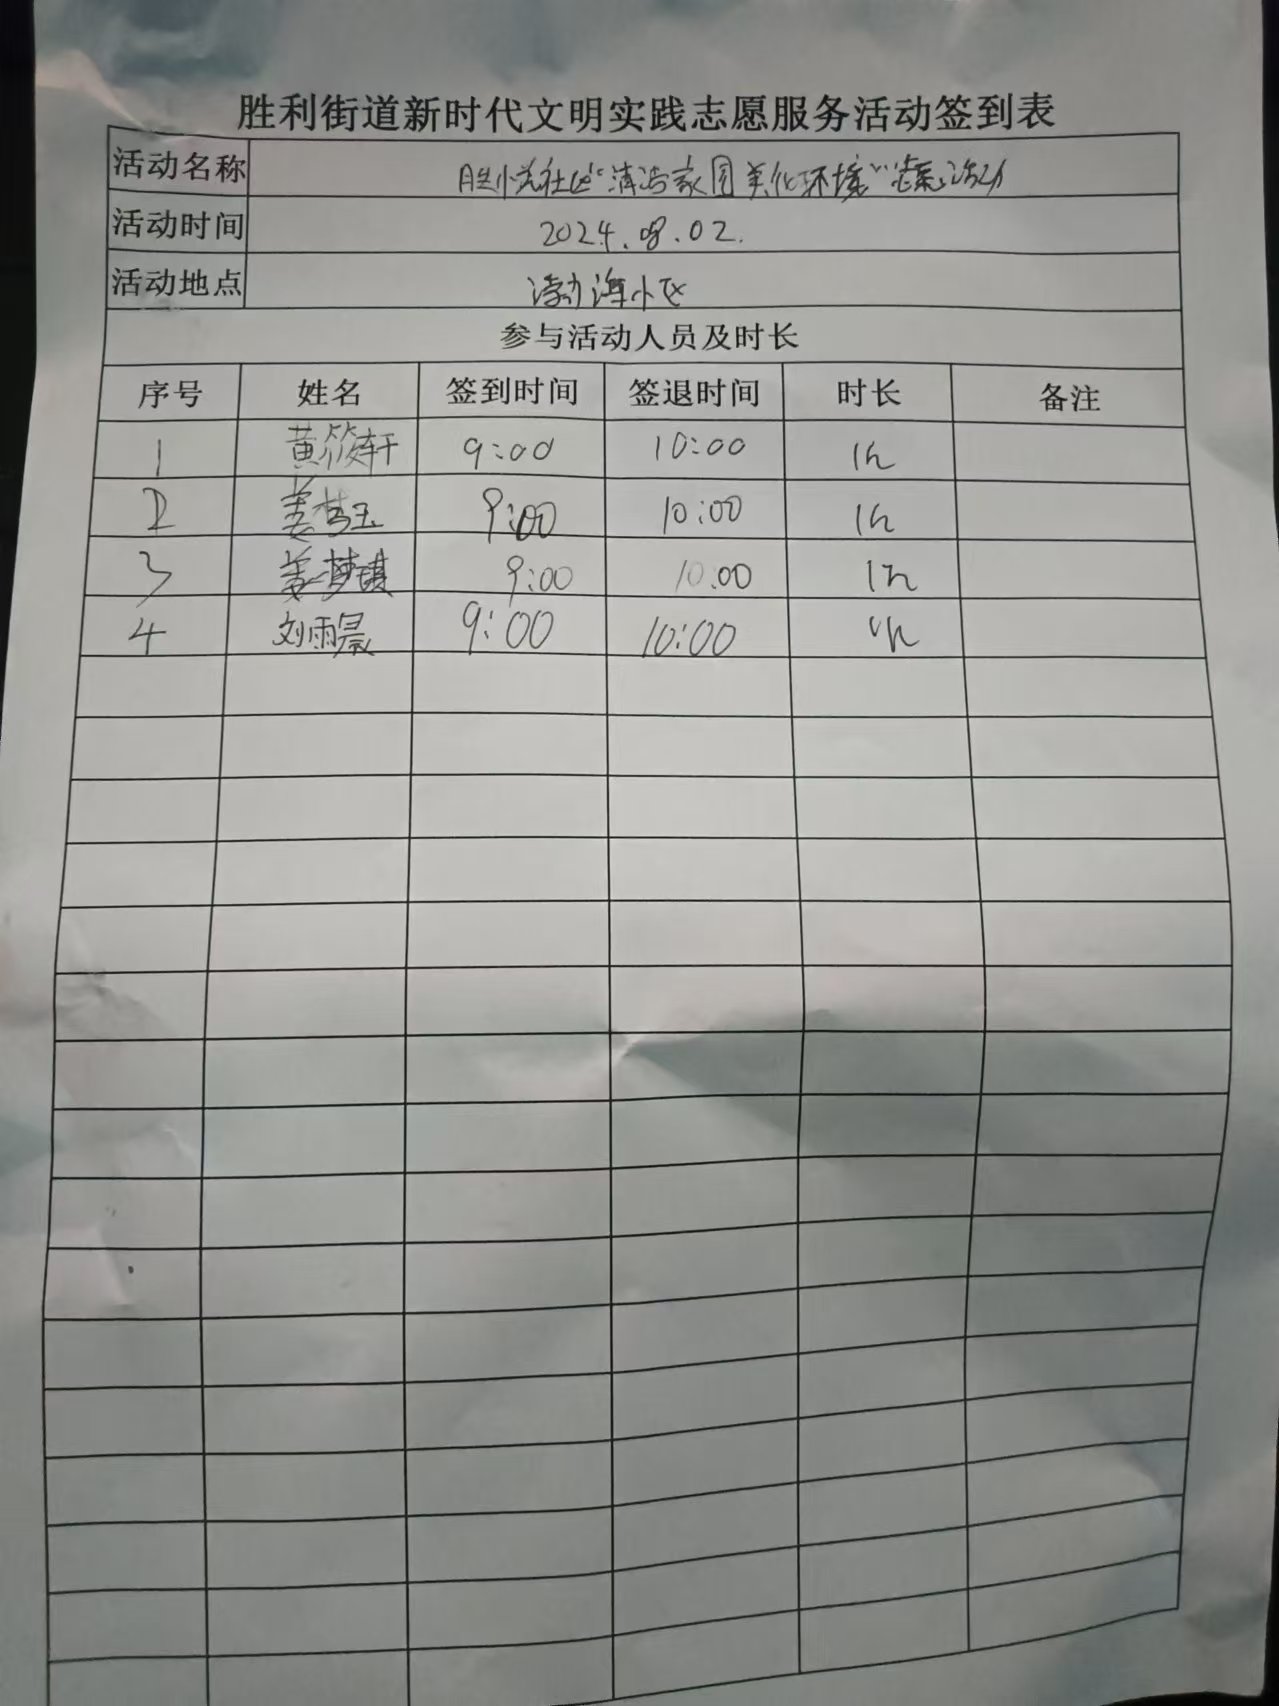 胜利街道新时代文明实践志愿服务活动签到表
活动名称 社区"清洁家园 美化环境" 活动
活动时间 2024.08.02.
活动地点 渤海小区
参与活动人员及时长
序号 姓名 签到时间 签退时间 时长 备注
1 黄筱轩 9:00 10:00 1h
2 姜梦玉 9:00 10:00 1h
3 姜梦琪 9:00 10:00 1h
4 刘雨晨 9:00 10:00 1h